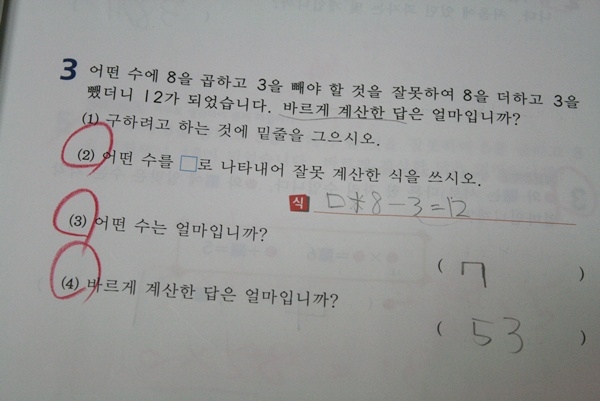 3 어떤 수에 8을 곱하고 3을 빼야 할 것을 잘못하여 8을 더하고 3을
뺐더니 12가 되었습니다. 바르게 계산한 답은 얼마입니까?
(1) 구하려고 하는 것에 밑줄을 그으시오.
(2) 어떤 수를 □로 나타내어 잘못 계산한 식을 쓰시오.
식 □*8-3=12
(3) 어떤 수는 얼마입니까?
( 7 )
(4) 바르게 계산한 답은 얼마입니까?
( 53 )